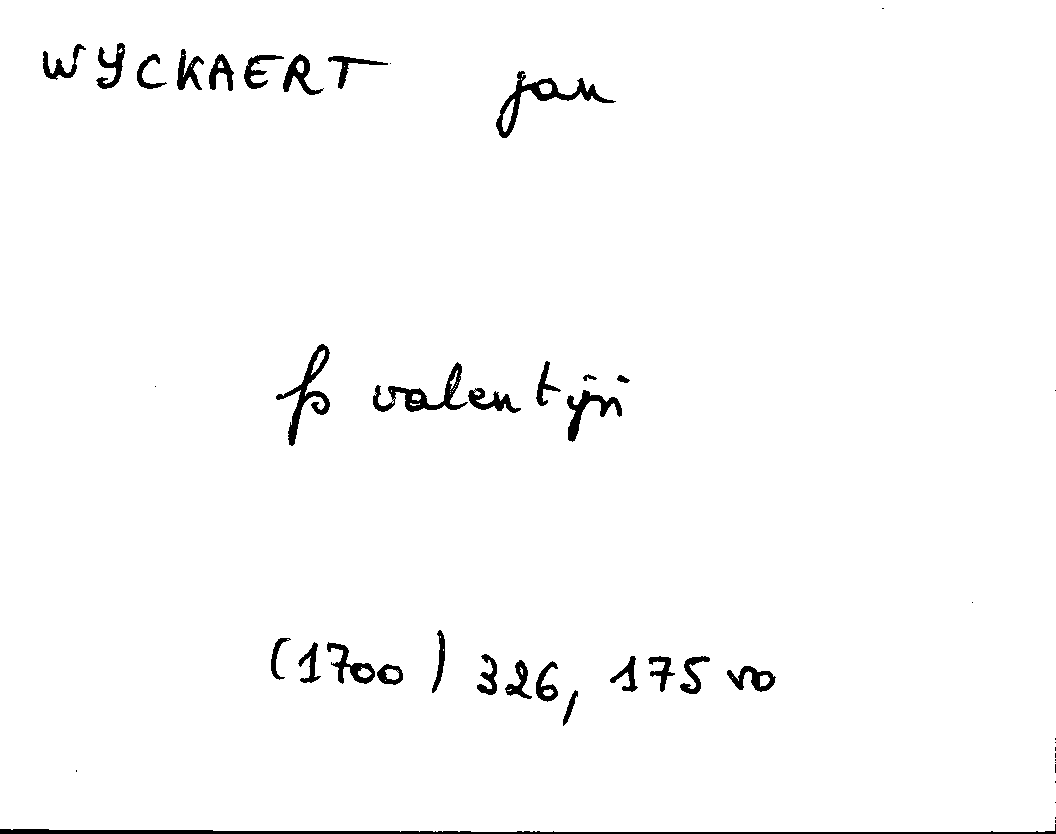 WYCKAERT jan
fs valentijn
(1700) 326, 175 vo